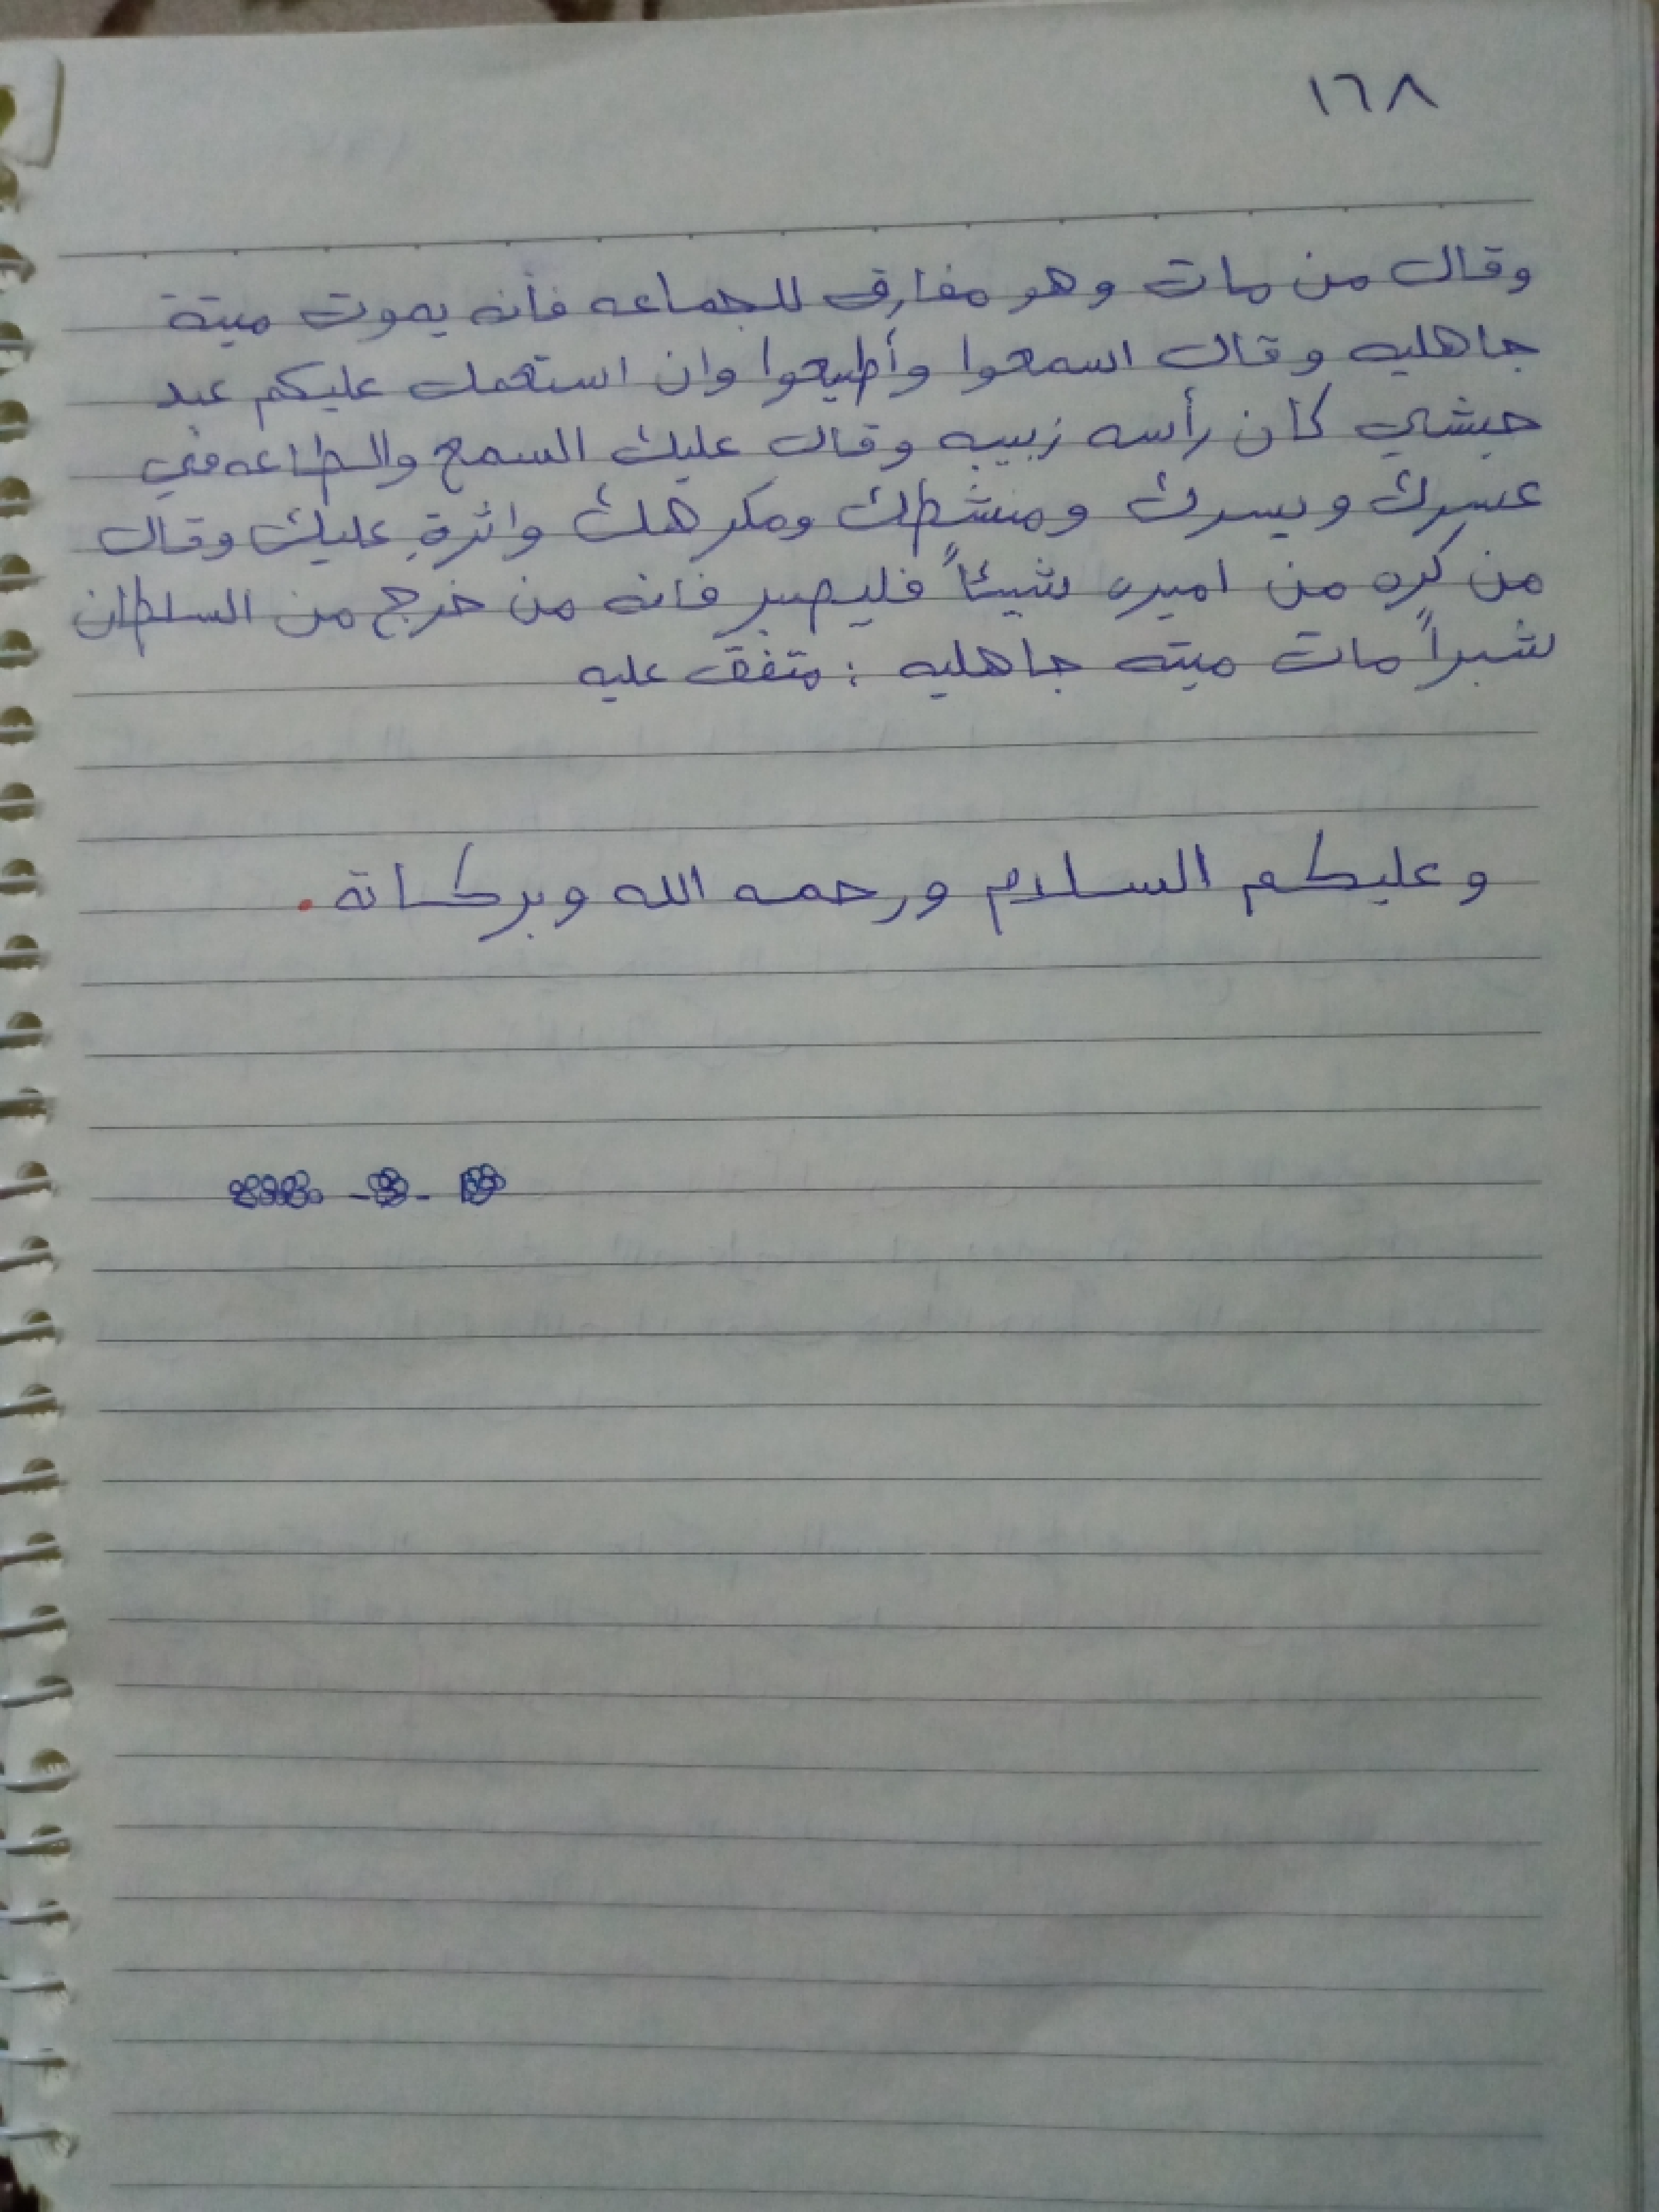 ١٦٨
وقال من مات وهو مفارق للجماعه فأنه يموت ميتة
جاهليه وقال اسمعوا وأطيعوا وان استعمل عليكم عبد
حبشي كان رأسه زبيبه وقال عليك السمع والطاعه في
عسرك ويسرك ومنشطك ومكرهك واثرةِ عليك وقال
من كره من اميره شيئاً فليصبر فانه من خرج من السلطان
شبراً مات ميته جاهليه : متفق عليه
وعليكم السلام ورحمه الله وبركاتة .